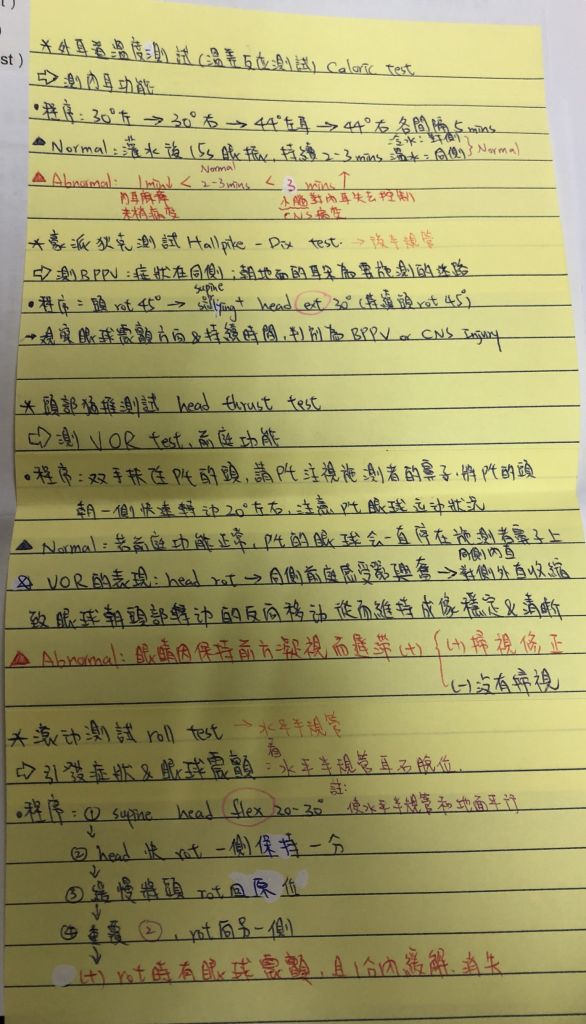 st )
*外耳道溫度測試(溫差反应測試) Caloric test
⇨ 測內耳功能
•程序: 30°左 → 30°右 → 44°左耳 → 44°右 各間隔 5 mins
▲Normal: 灌水後 15s 眼振, 持續 2-3 mins 冷水:對側 溫水:同側 } Normal
▲Abnormal: 1min↓ < Normal 2-3mins < 3 mins ↑
內耳麻痺 末梢病变 小腦對內耳失去控制 CNS 病变
*豪派狄克測試 Hallpike - Dix test. → 後半規管
⇨ 測BPPV: 症狀在同側; 朝地面的耳朵為要施測的迷路
•程序: 頭 rot 45° → supine + head ext 30° (持續頭 rot 45°)
→ 观察眼球震顫方向&持續時間, 判別為 BPPV or CNS Injury
*頭部猛推測試 head thrust test
⇨ 測 VOR test, 前庭功能
•程序: 双手扶住Pt的頭, 請Pt注視施測者的鼻子, 將Pt的頭
朝一側快速轉动20°左右, 注意Pt眼球运动狀況
▲Normal: 若前庭功能正常, Pt的眼球会一直停在施測者鼻子上
VOR的表現: head rot → 同側前庭感受器興奮 → 同側內直 對側外直收縮
致眼球朝頭部轉动的反向移动從而維持成像穩定&清晰
▲Abnormal: 眼睛內保持前方凝視而遲滯(+) { (+) 掃視修正
(-) 沒有掃視
*滾动測試 roll test → 水平半規管
⇨ 引發症狀&眼球震顫: 看水平半規管耳石脫位.
•程序: ① supine head flex 20-30° 註: 使水平半規管和地面平行
↓
② head 快 rot 一側保持一分
↓
③ 緩慢將頭 rot 回原位
↓
④ 重覆②, rot 向另一側
↓
(+) rot時有眼球震顫, 且1分內緩解.消失